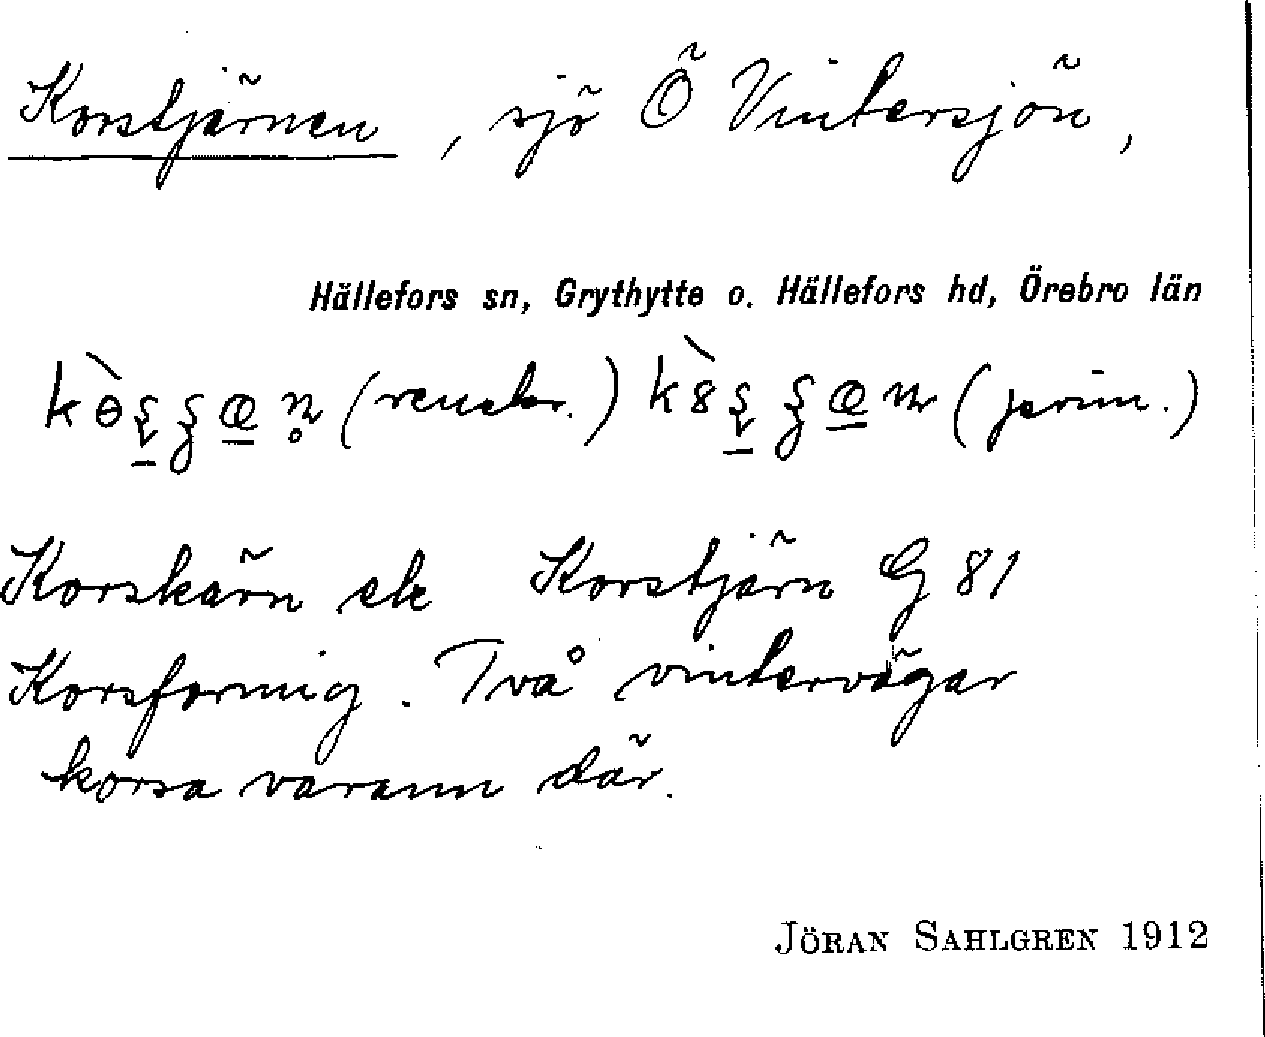 Korstjärnen, sjö Ö Vintersjön,
Hällefors sn, Grythytte o. Hällefors hd, Örebro län
(renskr.) (prim.)
Korskärn ek Korstjärn G 81
Korsformig. Två vintervägar
korsa varann där.
JÖRAN SAHLGREN 1912